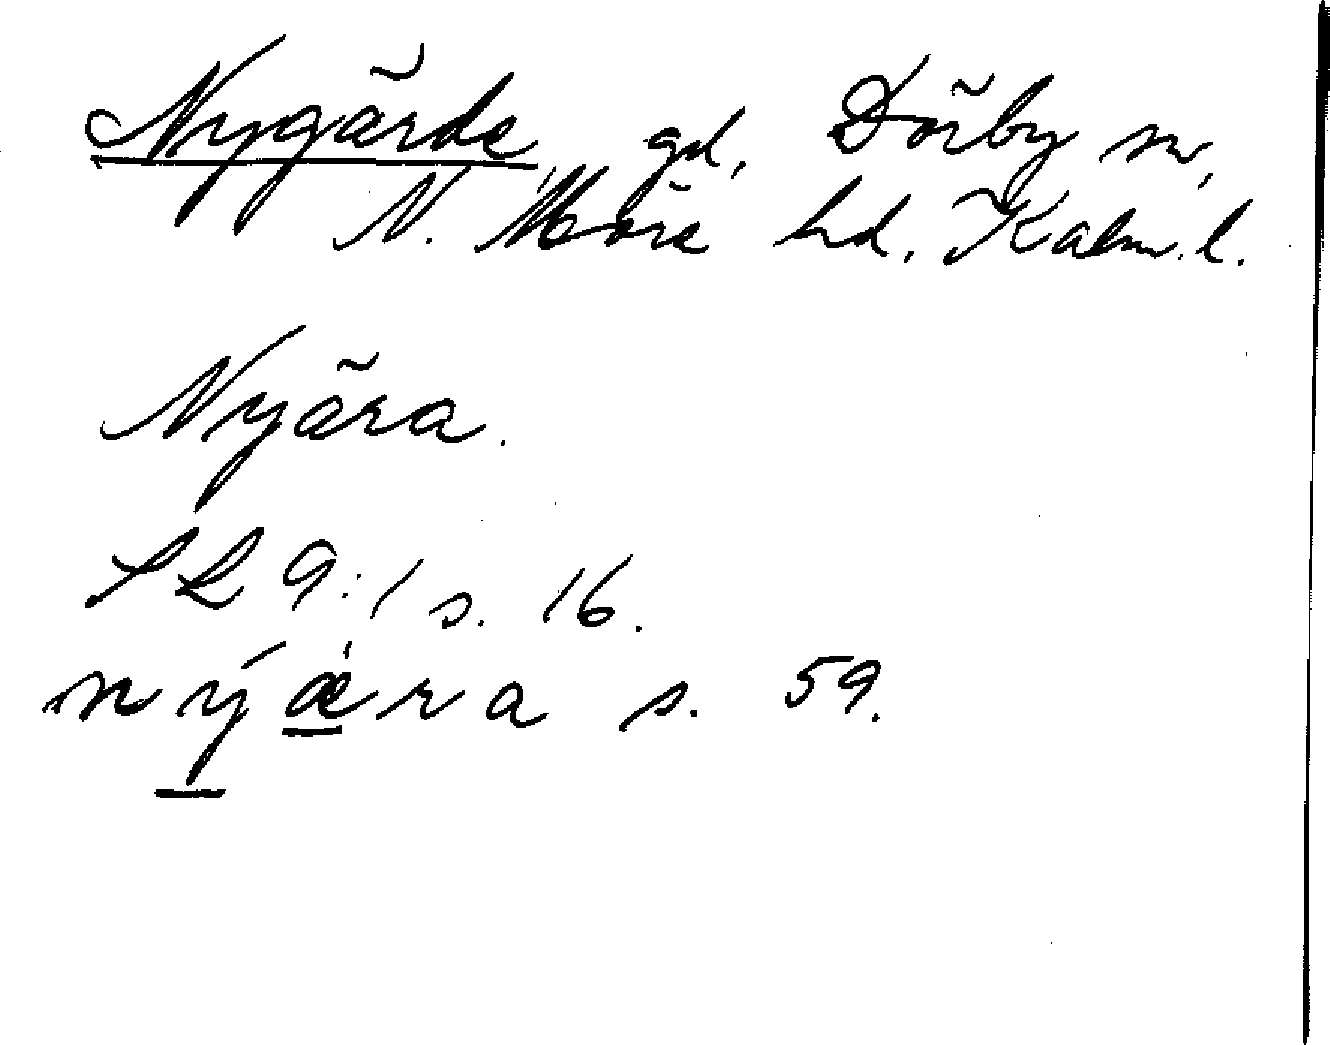 Nygärde gd, Dörby sn,
N. Möre hd. Kalm. l.
Nyära.
SL 9:1 s. 16.
nýǽra s. 59.